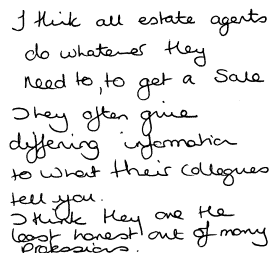 I think all estate agents
do whatever they
need to, to get a sale
They often give
differing information
to what their collegues
tell you.
I think they are the
least honest out of many
professions.